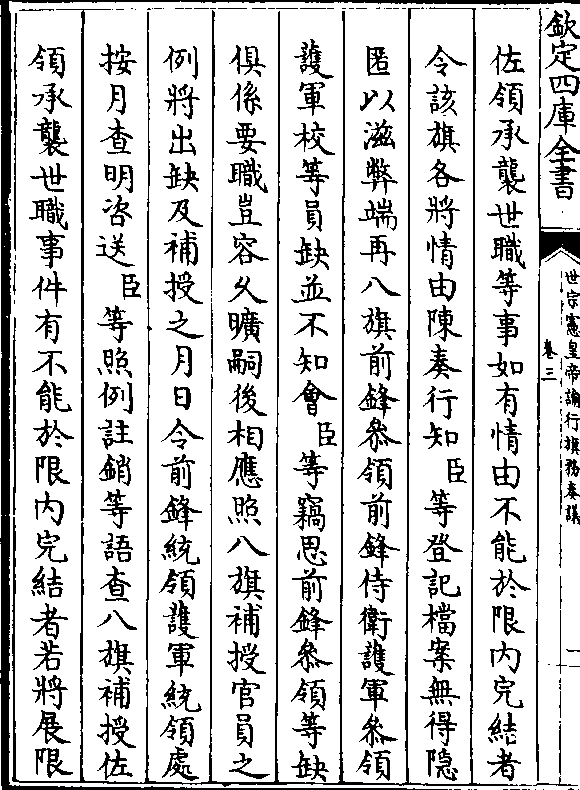 欽定四庫全書
世宗憲皇帝諭行旗務奏議
卷三
一
佐領承襲世職等事如有情由不能於限内完結者
令該旗各將情由陳奏行知臣等登記檔案無得隐
匿以滋弊端再八旗前鋒叅領前鋒侍衛護軍叅領
護軍校等員缺並不知會臣等竊思前鋒叅領等缺
俱係要職豈容久曠嗣後相應照八旗補授官員之
例將出缺及補授之月日令前鋒統領護軍統領處
按月查明咨送臣等照例註銷等語查八旗補授佐
領承襲世職事件有不能於限内完結者若將展限